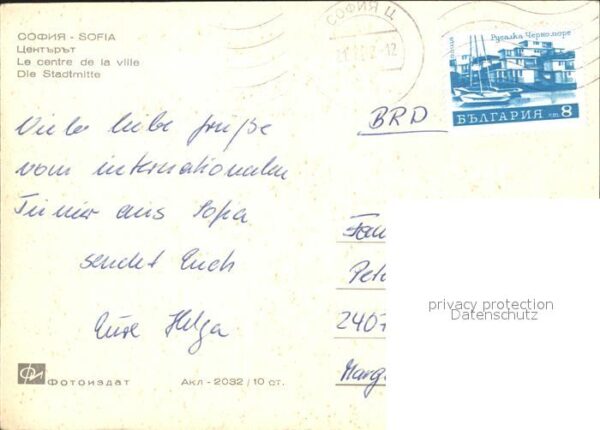 СОФИЯ - SOFIA
Центърът
Le centre de la ville
Die Stadtmitte
СОФИЯ Ц
Русалка Черноморе
БЪЛГАРИЯ ст. 8
BRD
Viele liebe Grüße
vom internationalen
Turnier aus Sofia
sendet Euch
Eure Helga
Fam
Pet
2407
Marg
privacy protection
Datenschutz
Фотоиздат Акл - 2032 / 10 ст.